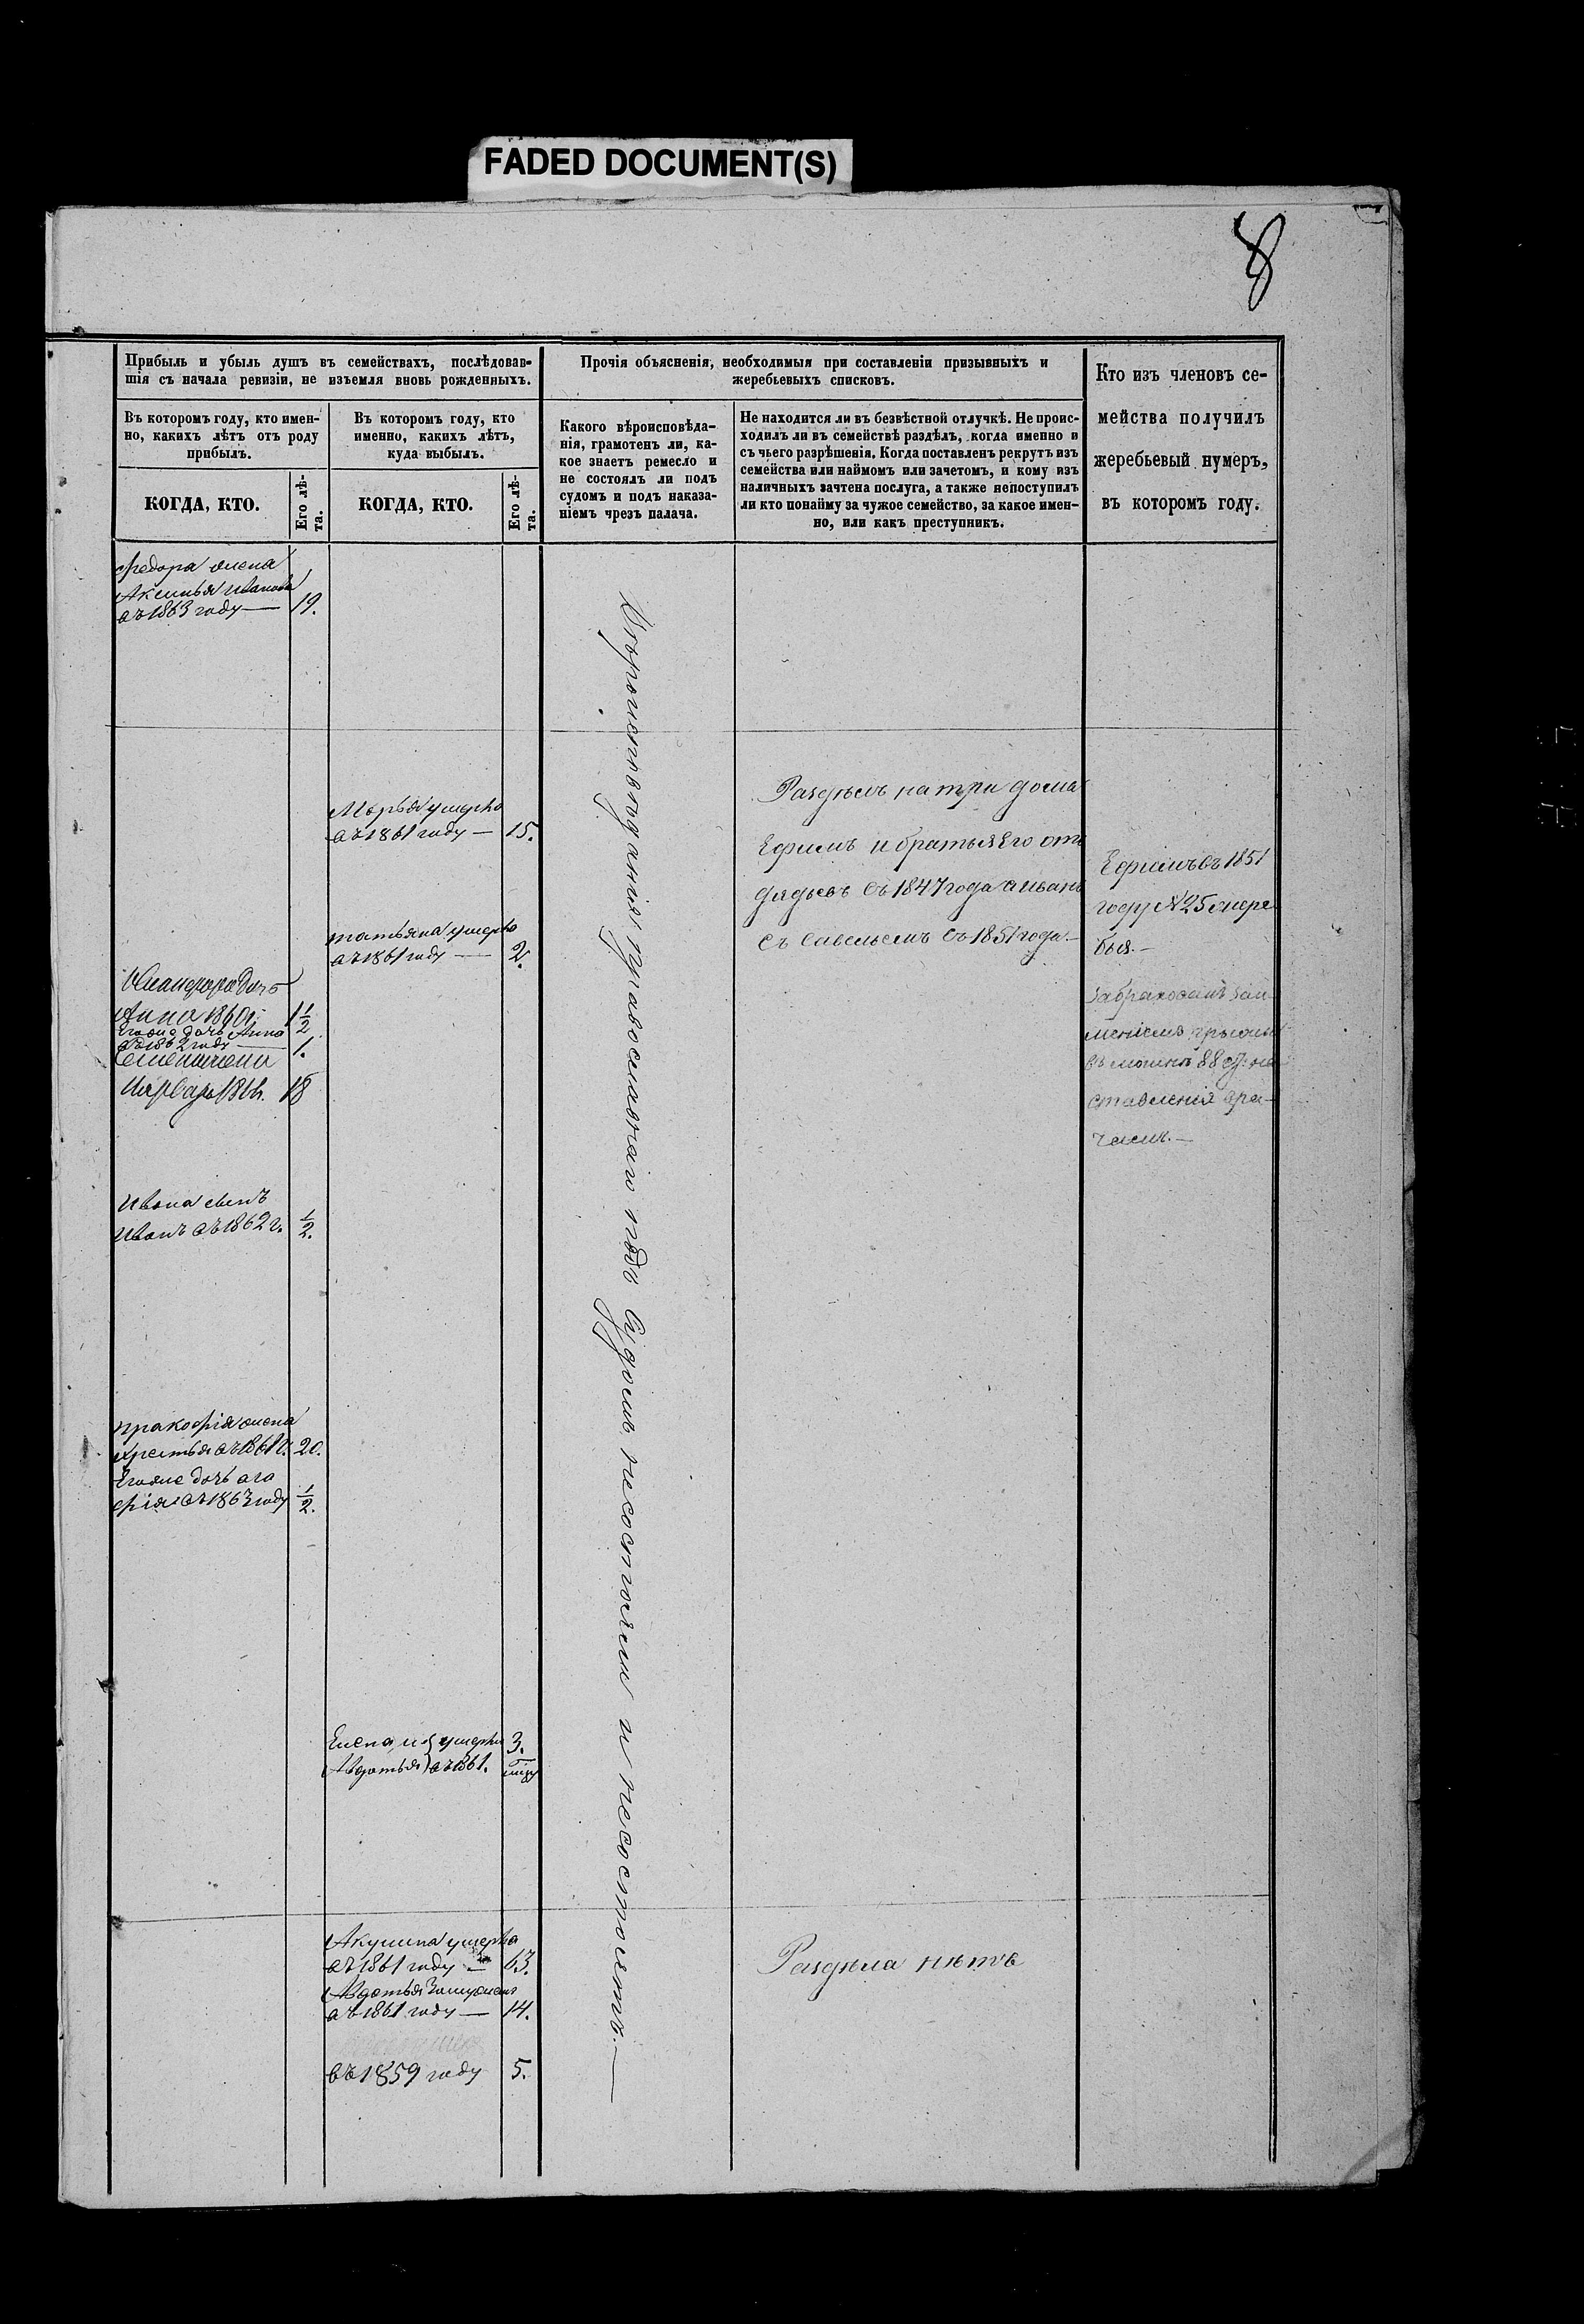 FADED DOCUMENT(S)
8
Прибыль и убыль душъ въ семействахъ, послѣдовав-
шія съ начала ревизіи, не изъемля вновь рожденныхъ.
Въ которомъ году, кто имен-
но, какихъ лѣтъ отъ роду
прибылъ.
КОГДА, КТО.
Его лѣ-
та.
Въ которомъ году, кто
именно, какихъ лѣтъ,
куда выбылъ.
КОГДА, КТО.
Его лѣ-
та.
Прочія объясненія, необходимыя при составленіи призывныхъ и
жеребьевыхъ списковъ.
Какого вѣроисповѣда-
нія, грамотенъ ли, ка-
кое знаетъ ремесло и
не состоялъ ли подъ
судомъ и подъ наказа-
ніемъ чрезъ палача.
Не находится ли въ безвѣстной отлучкѣ. Не проис-
ходилъ ли въ семействѣ раздѣлъ, когда именно и
съ чьего разрѣшенія. Когда поставленъ рекрутъ изъ
семейства или наймомъ или зачетомъ, и кому изъ
наличныхъ зачтена послуга, а также непоступилъ
ли кто понайму за чужое семейство, за какое имен-
но, или какъ преступникъ.
Кто изъ членовъ се-
мейства получилъ
жеребьевый нумеръ,
въ которомъ году.
Федора жена
Аксинья Иванова
въ 1863 году — 19.
Марья умерла
въ 1861 году — 15.
татьяна умерла
въ 1861 году — 2.
дочь
Анна 1860 г. 1½
Егоже дочь Анна
въ 1862 году — 1.
18
Ивана сынъ
Иванъ въ 1862 г. ½.
пракофія жена
въ 1861 г. 20.
Егоже дочь ага
фія въ 1863 году ½.
Елена и умерли 3.
Авдотья въ 1861.
Акулина умерла
въ 1861 году — 63.
Авдотья Замужемъ
въ 1861 году — 14.
въ 1859 году 5.
Вѣроисповѣданія православнаго подъ Судомъ несостояли и несостоятъ. —
Раздѣлъ на три дома
Ефимъ и братья Его отъ
дядьевъ съ 1847 года а иванъ
съ савельемъ съ 1851 года. —
Раздѣла нѣтъ
Ефимъ въ 1851
году № 25 жере
бья. —
88
ставленія вра-